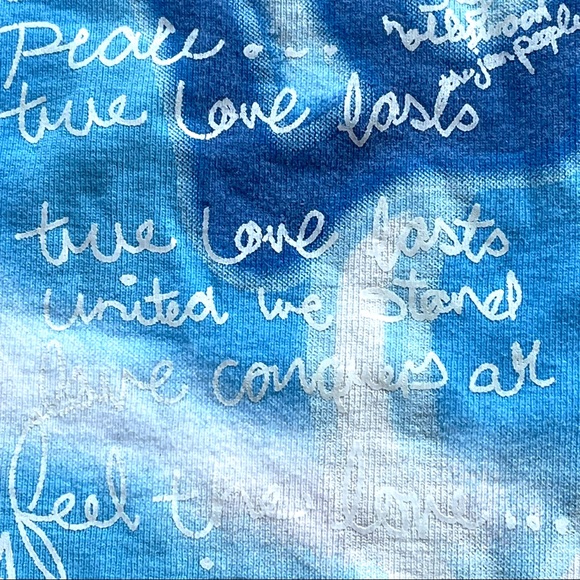 peace...
wildwood
the jean people
true love lasts
true love lasts
united we stand
love conquers all
feel the love...